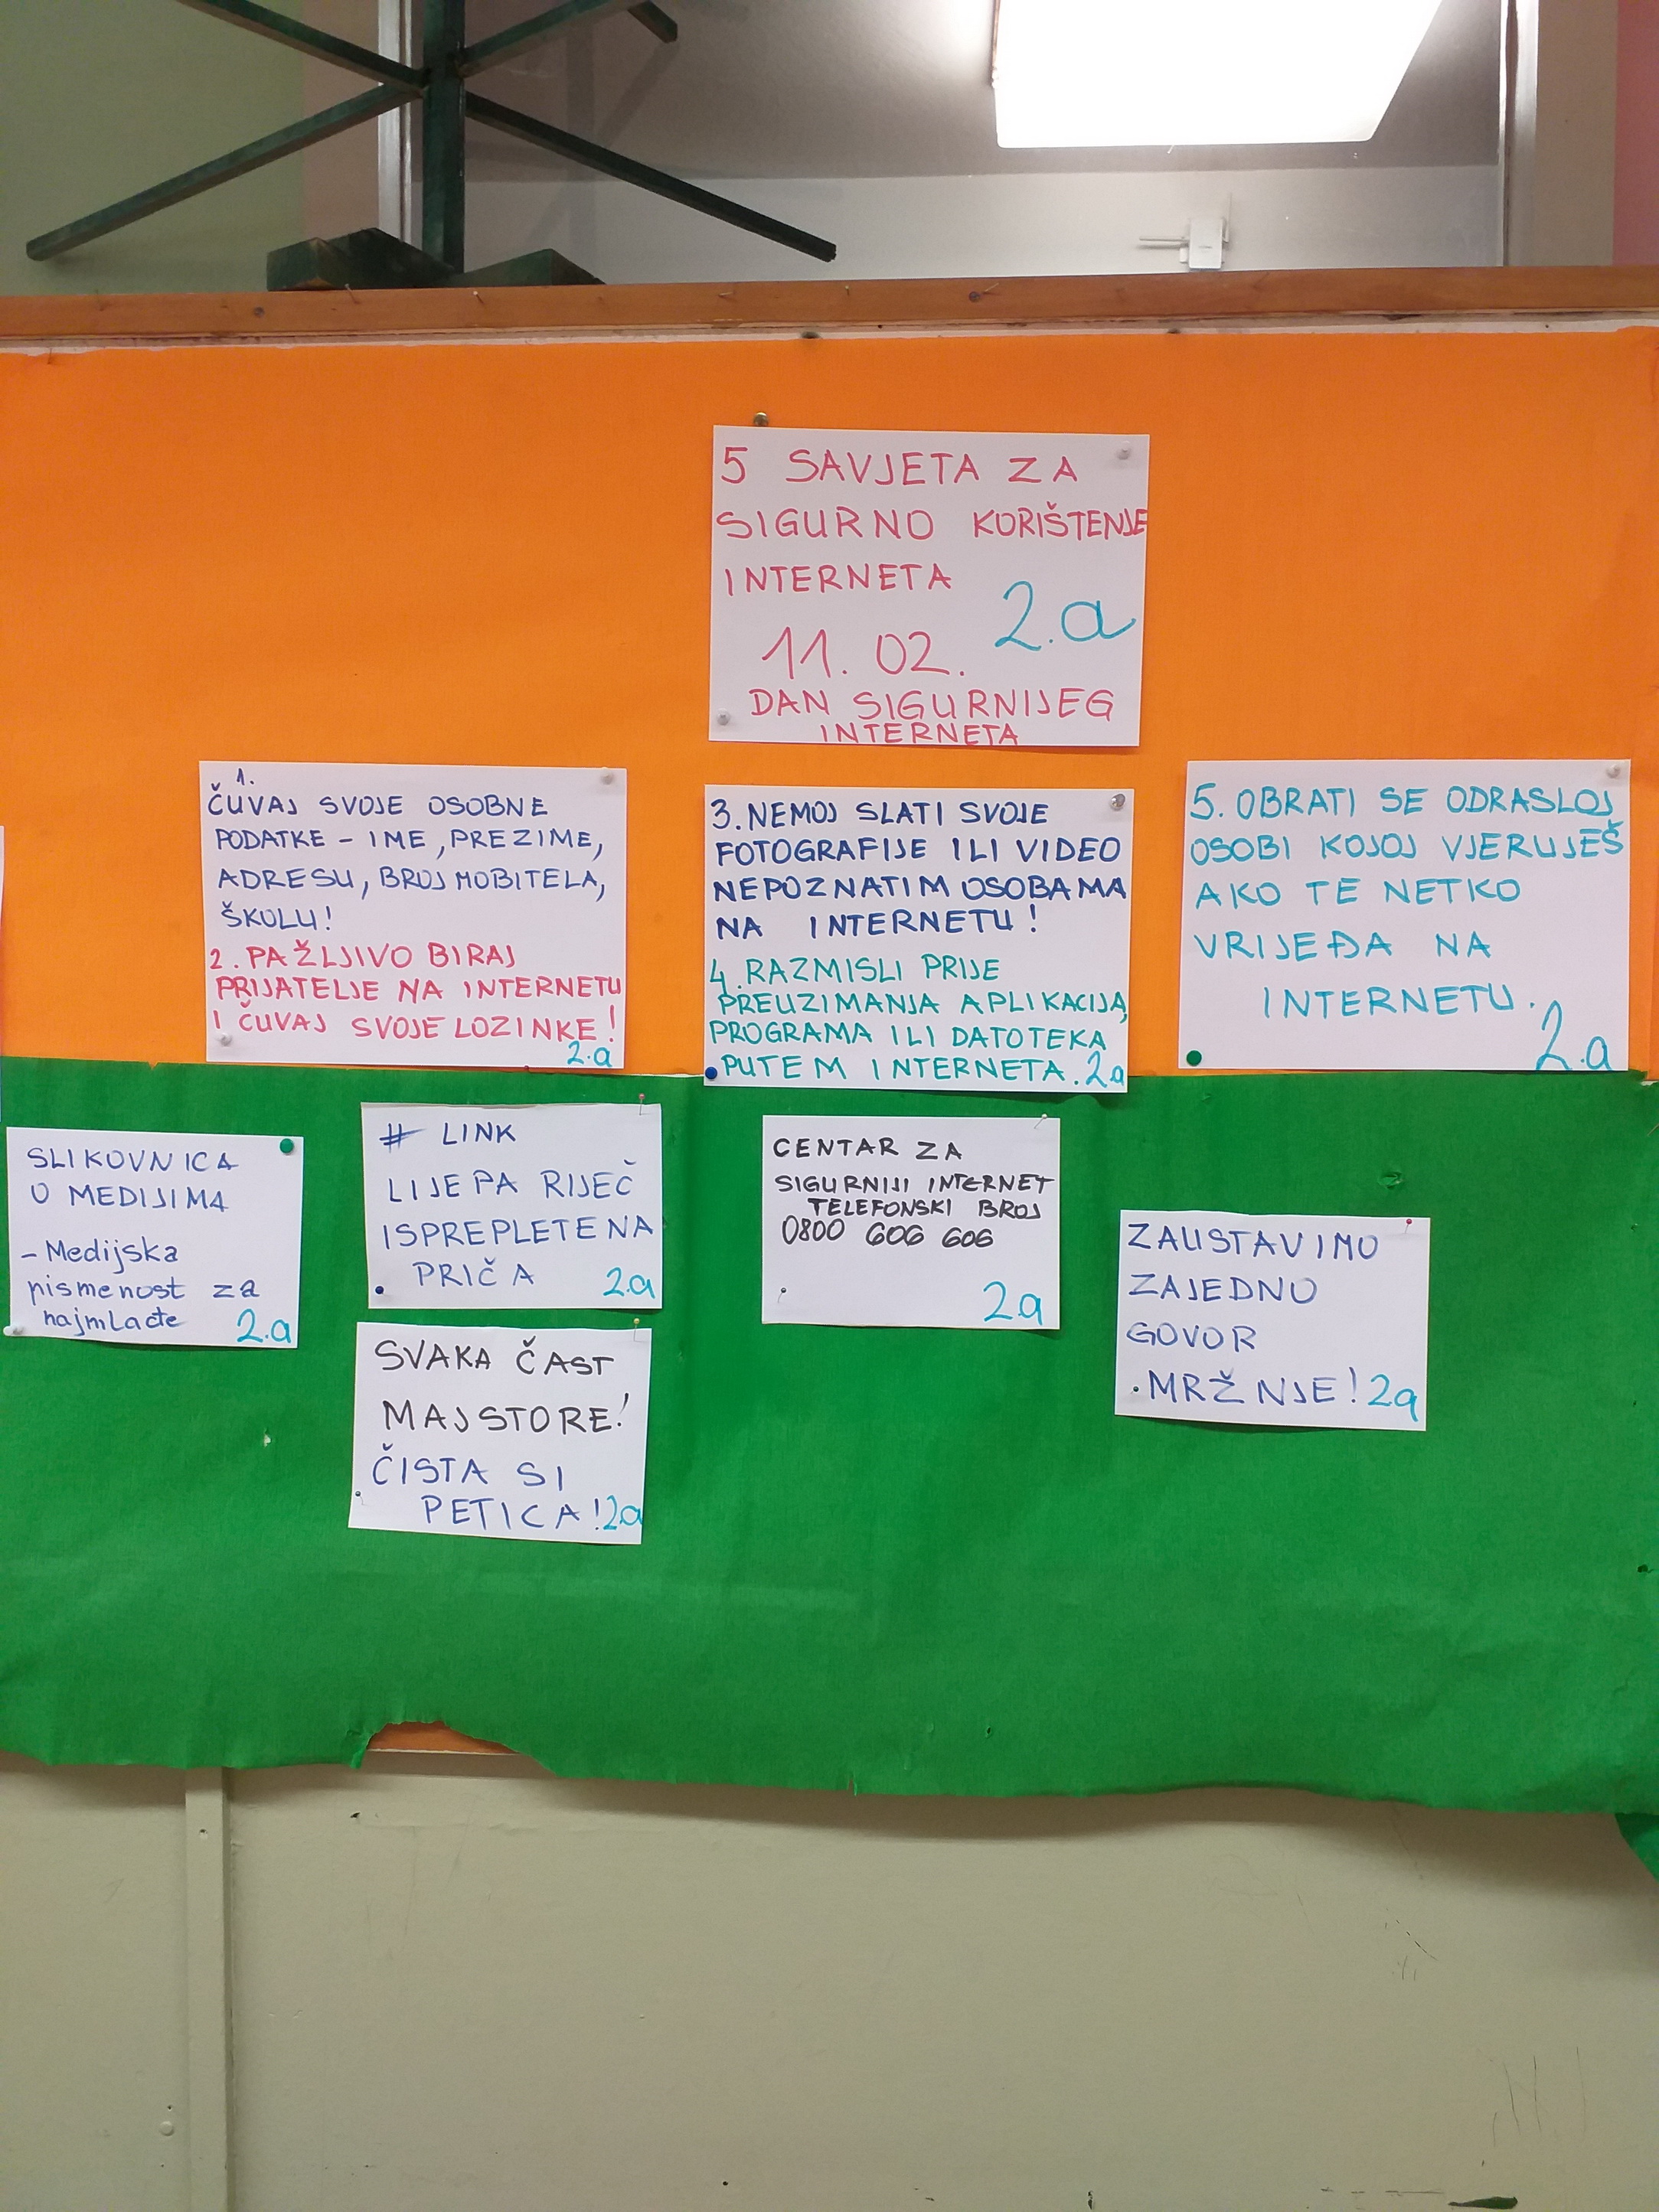 5 SAVJETA ZA
SIGURNO KORIŠTENJE
INTERNETA
2.a
11. 02.
DAN SIGURNIJEG
INTERNETA
1.
ČUVAJ SVOJE OSOBNE
PODATKE - IME, PREZIME,
ADRESU, BROJ MOBITELA,
ŠKOLU!
2. PAŽLJIVO BIRAJ
PRIJATELJE NA INTERNETU
I ČUVAJ SVOJE LOZINKE!
2.a
3. NEMOJ SLATI SVOJE
FOTOGRAFIJE ILI VIDEO
NEPOZNATIM OSOBAMA
NA INTERNETU!
4. RAZMISLI PRIJE
PREUZIMANJA APLIKACIJA,
PROGRAMA ILI DATOTEKA
PUTEM INTERNETA. 2.a
5. OBRATI SE ODRASLOJ
OSOBI KOJOJ VJERUJEŠ
AKO TE NETKO
VRIJEĐA NA
INTERNETU.
2.a
SLIKOVNICA
O MEDIJIMA
- Medijska
pismenost za
najmlađe 2.a
# LINK
LIJEPA RIJEČ
ISPREPLETENA
PRIČA 2.a
SVAKA ČAST
MAJSTORE!
ČISTA SI
PETICA! 2.a
CENTAR ZA
SIGURNIJI INTERNET
TELEFONSKI BROJ
0800 606 606
2.a
ZAUSTAVIMO
ZAJEDNO
GOVOR
MRŽNJE! 2a